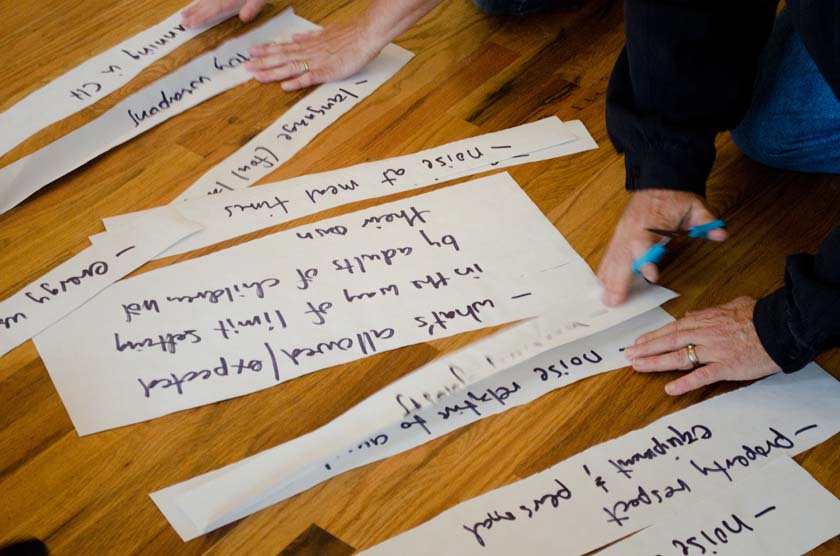 anning is CH
Toy weapons
- language (foul la
- noise at meal times
- energy us
- what's allowed/expected
in the way of limit setting
by adults of children not
their own
- noise relative to
- property respect
equipment & personal
- noise